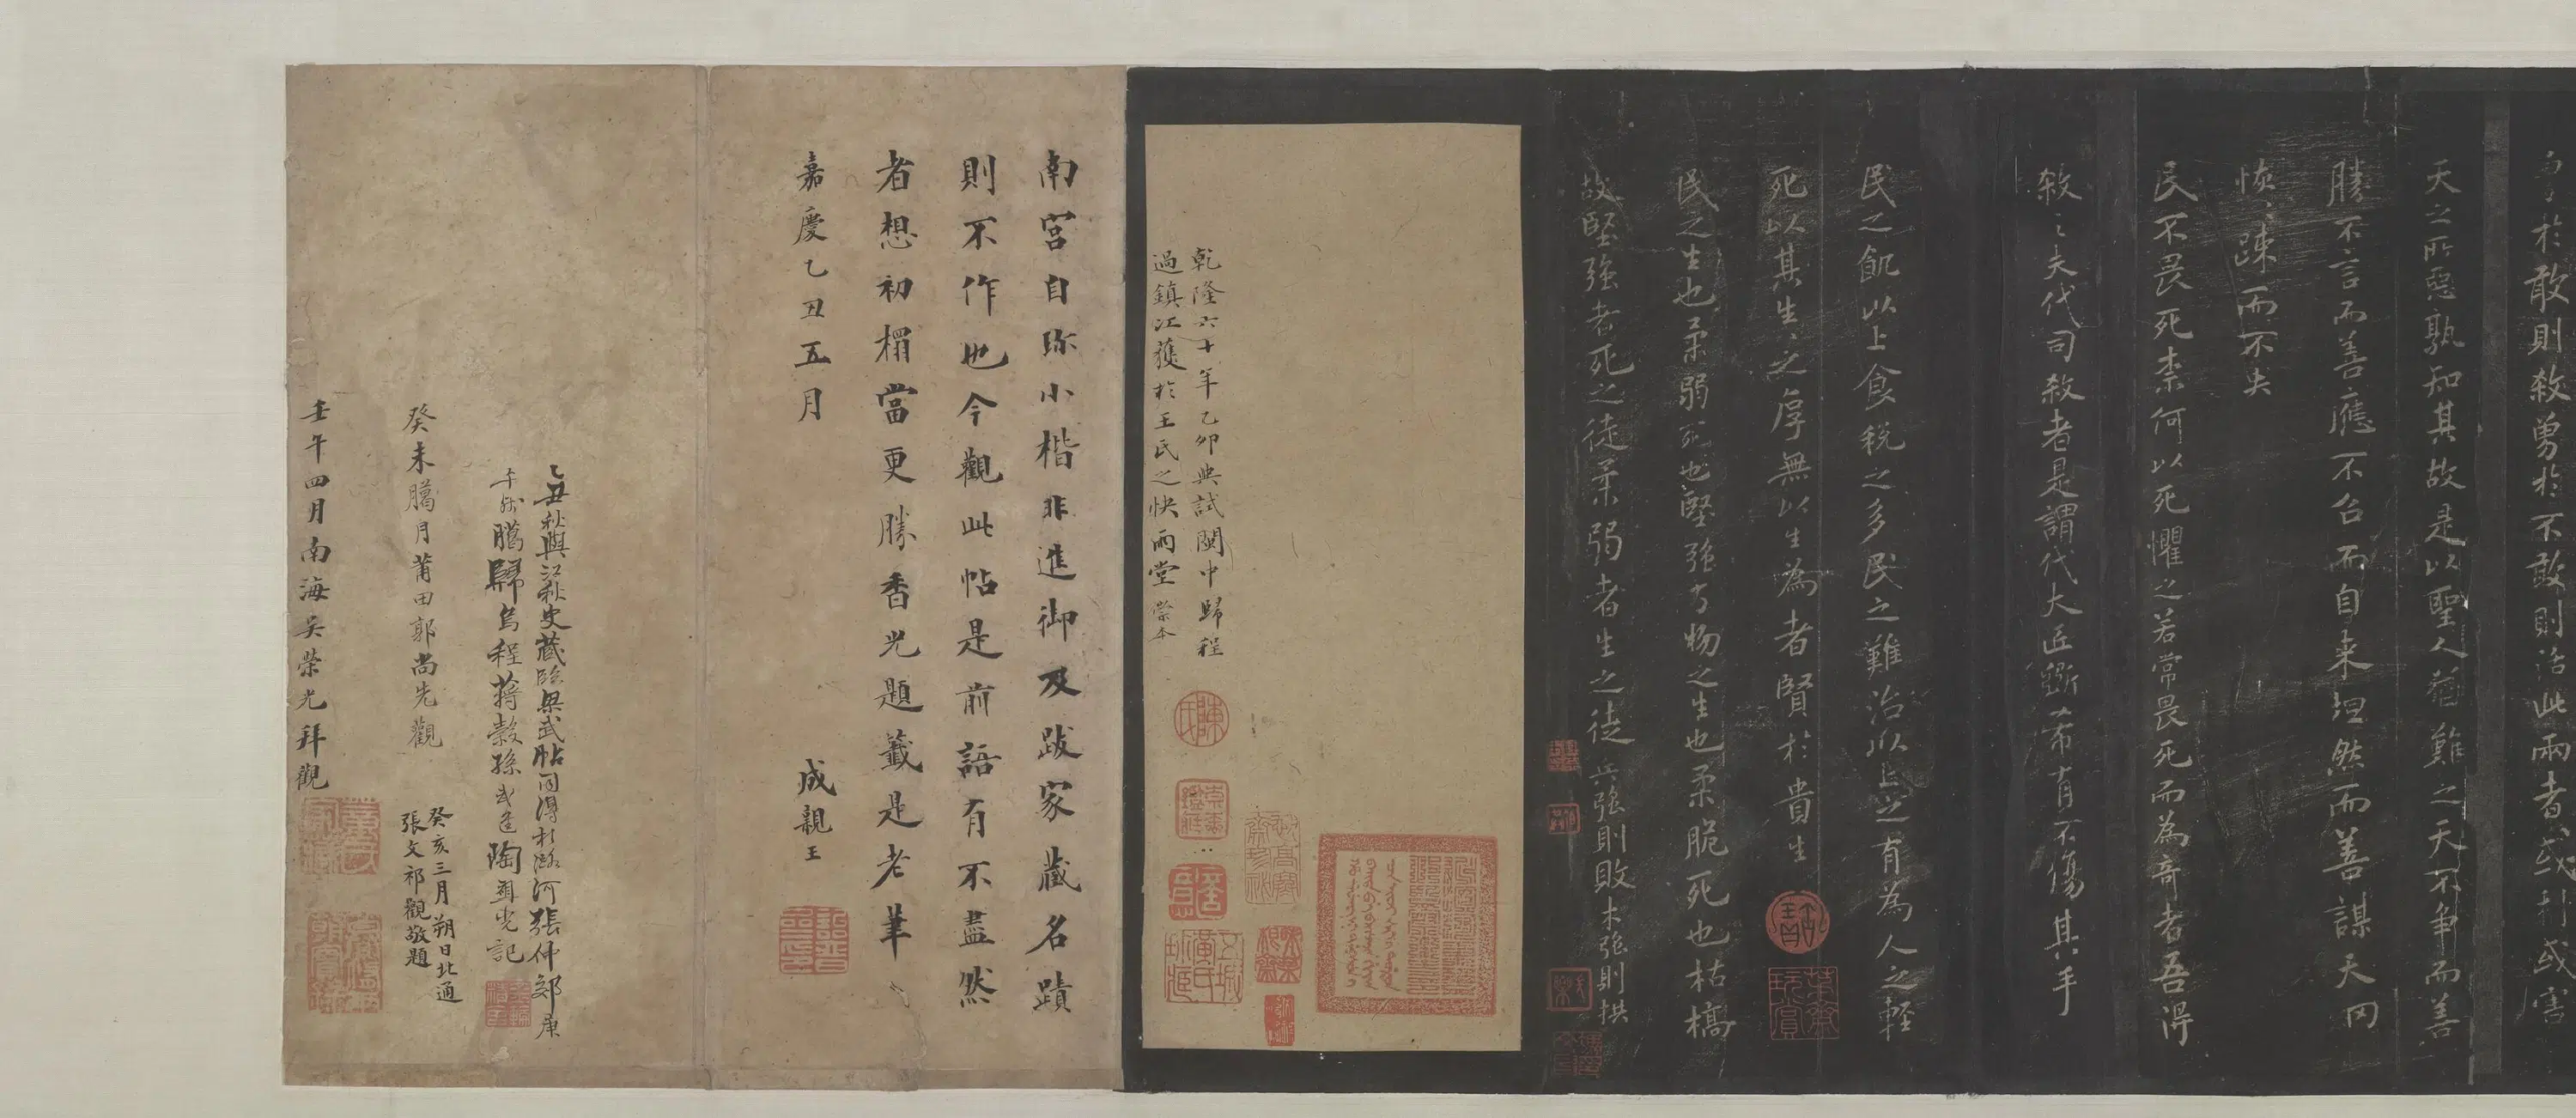 於敢則殺勇於不敢則活此兩者或利或害
天之所惡孰知其故是以聖人猶難之天不爭而善
勝不言而善應不召而自来坦然而善謀天网
恢〻踈而不失
民不畏死柰何以死懼之若常畏死而為奇者吾得
殺〻夫代司殺者是謂代大匠斲希有不傷其手
民之飢以上食稅之多民之難治以上之有為人之軽
死以其生〻之厚無以生為者賢於貴生
民之生也柔弱死也堅强万物之生也柔脆死也枯槁
故堅强者死之徒柔弱者生之徒兵强則敗木强則拱
乾隆六十年乙卯典試閩中歸程
過鎮江獲於王氏之快雨堂 榮
南宮自珎小楷非進御及跋家藏名蹟
則不作也今觀此帖是前語有不盡然
者想初榻當更勝香光題籤是老筆
嘉慶乙丑五月
成親王
乙丑秋與江秋史藏臨梁武帖同得於潞河張仲郊庚
午殘臘歸烏程蔣穀孫武進陶北光記
癸未臘月莆田郭尚先觀
癸亥三月朔日北通
張文祁觀敬題
壬午四月南海吳榮光拜觀